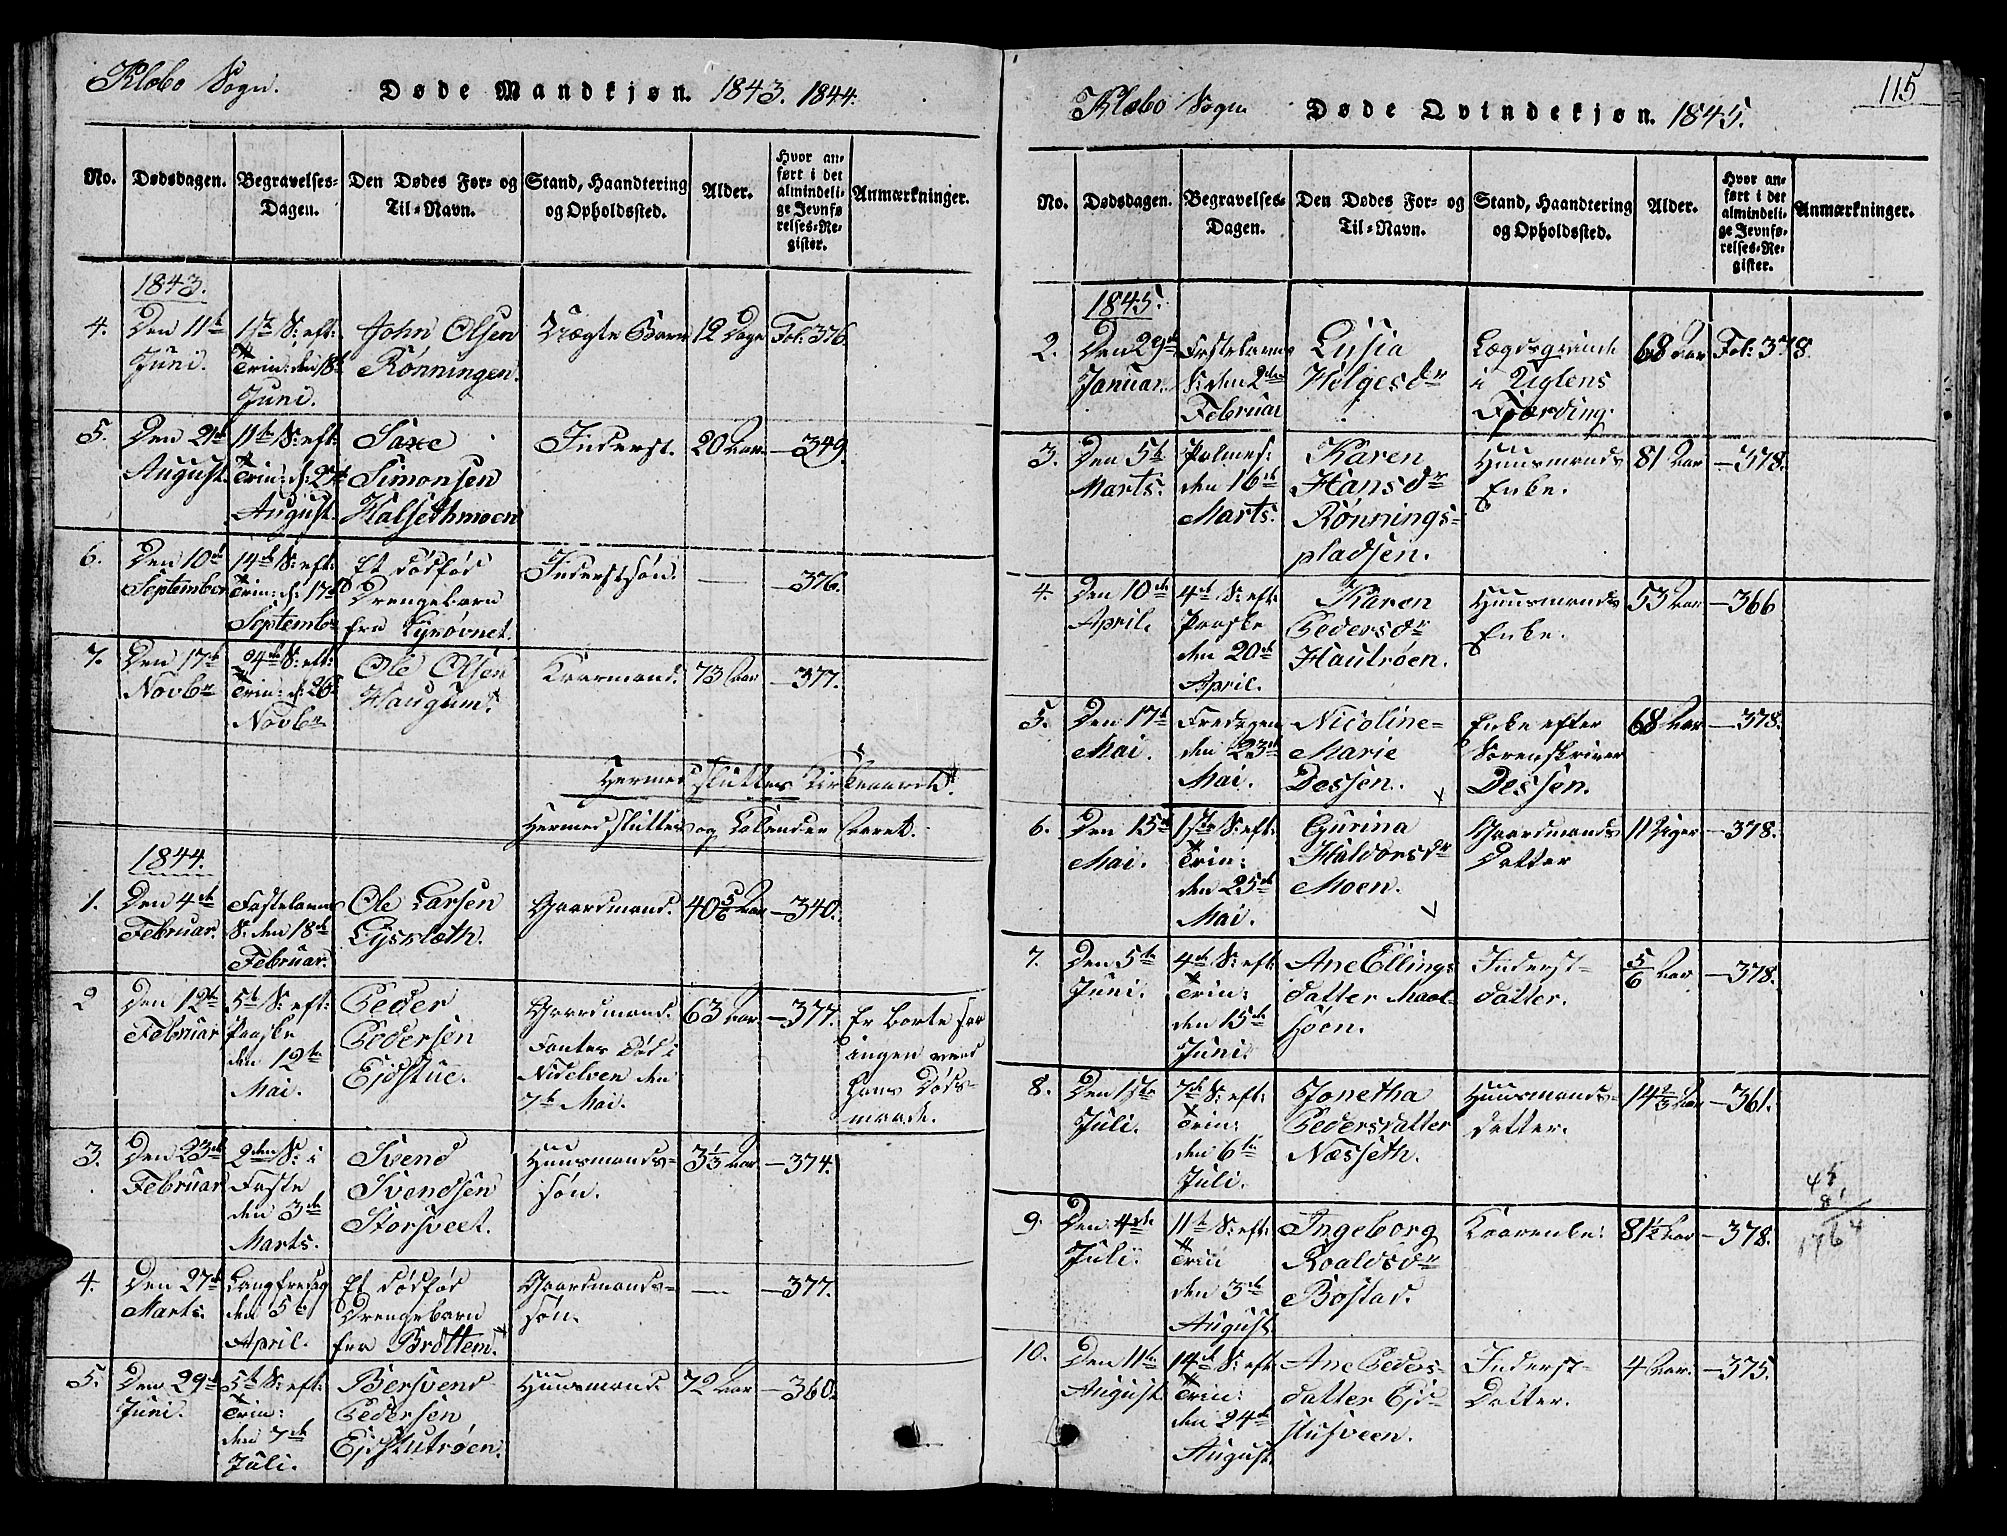 Klæbo Sogn.
Døde Mandkjøn. 1843. 1844.
No.
Dødsdagen.
Begravelses-
Dagen.
Den Dødes For- og
Til-Navn.
Stand, Haandtering
og Opholdssted.
Alder.
Hvor an-
ført i det
almindeli-
ge Jevnfø
relses-Re-
gister.
Anmærkninger.
1843.
4.
Den 11te
Juni.
1ste S: eft:
Trin: den 18de
Juni.
John Olsen
Rønningen.
Uægte Barn
12 Dage
Fol: 376.
5.
Den 21de
August.
11te S: eft:
Trin: d: 27de
August.
Saxe
Simonsen
Halsethmoen
Inderst.
20 Aar.
—349.
6.
Den 10de
September
14de S: eft:
Trin: d: 17de
Septembr
Et dødfød
Drengebarn
fra
Inderstsøn.
—
—376.
7.
Den 17de
Novbr
24de S: eft:
Trin: d: 26de
Novbr
Ole Olsen
Haugum.
Kaarmand.
73 Aar
—377.
Hermed sluttes Kirkeaaret.
Hermed sluttes og Calender Aaret.
1844.
1.
Den 4de
Februar.
Fastelavns
S: den 18de
Februar.
Ole Larsen
Lysklæth.
Gaardmand.
40 5/6 Aar
—340.
2
Den 12te
Februar
5te S: eft:
Paaske
den 12te
Mai.
Peder
Pedersen
Ejdstue.
Gaardmand.
Fantes død i
Nidelven den
7de Mai.
63 Aar.
—377.
Er borte saa
ingen veed
hans Døds-
maade.
3.
Den 23de
Februar
2den S: i
Faste
den 3de
Marts.
Svend
Svendsen
Storsveet.
Huusmands-
søn.
3 1/3 Aar
—374.
4.
Den 27de
Marts.
Langfredag
den 5te
April.
Et dødfød
Drengebarn
fra Brøttem.
Gaardmands-
søn.
—
—377.
5.
Den 29de
Juni.
5te S: eft:
Trin:
den 7de
Juli.
Bersvend
Pedersen
Ejdstutrøen.
Huusmand.
72 Aar
—360.
115
Klæbo Sogn
Døde Qvindekjøn. 1845.
No.
Dødsdagen.
Begravelses-
Dagen.
Den Dødes For- og
Til-Navn.
Stand, Haandtering
og Opholdssted.
Alder.
Hvor an-
ført i det
almindeli-
ge Jevnfø-
relses-Re-
gister.
Anmærkninger.
1845.
2.
Den 29de
Januar.
Fastelavns
S: den 2den
Februar
Lusia
Helgesdr
Lægdsqvinde
i Uglens
Fjærding.
68 Aar
Fol: 378.
3.
Den 5te
Marts.
Palmes:
den 16de
Marts.
Karen
Hansdr
Rønnings-
pladsen.
Huusmands
Enke.
81 Aar
—378.
4.
Den 10de
April.
4de S: eft:
Paaske
den 20de
April.
Karen
Pedersdr
Hautrøen.
Huusmands
Enke.
53 Aar
—366
5.
Den 17de
Mai.
Fredagen
den 23de
Mai.
Nicoline-
Marie
Dessen.
Enke efter
Sorenskriver
Dessen.
68 Aar
—378.
6.
Den 15de
Mai.
1ste S: eft:
Trin:
den 25de
Mai.
Gurina
Haldorsdr
Moen.
Gaardmands
Datter
11 Uger
—378.
7.
Den 5te
Juni.
4de S: eft:
Trin:
den 15de
Juni.
Ane Ellings
datter Maal-
søen.
Inderst-
datter.
5/6 Aar
—378.
8.
Den 1ste
Juli.
7de S: eft:
Trin:
den 6te
Juli.
Jonetha
Pedersdatter
Næsseth.
Huusmands-
datter.
14 2/3 Aar
—361.
9.
Den 4de
Juli.
11te S: eft:
Trin
den 3de
August
Ingeborg
Roaldsdr
Bostad.
Kaarenke.
81 1/2 Aar
—378.
10.
Den 11te
August
14de S: eft
Trin:
den 24de
August.
Ane Peders-
datter Ejd-
stusveen.
Inderst-
Datter.
4 Aar.
—375.